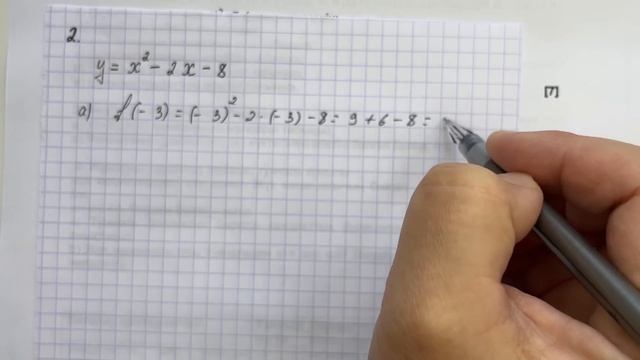 2.
y = x² - 2x - 8
a) f(- 3) = (- 3)² - 2 · (-3) - 8 = 9 + 6 - 8 =